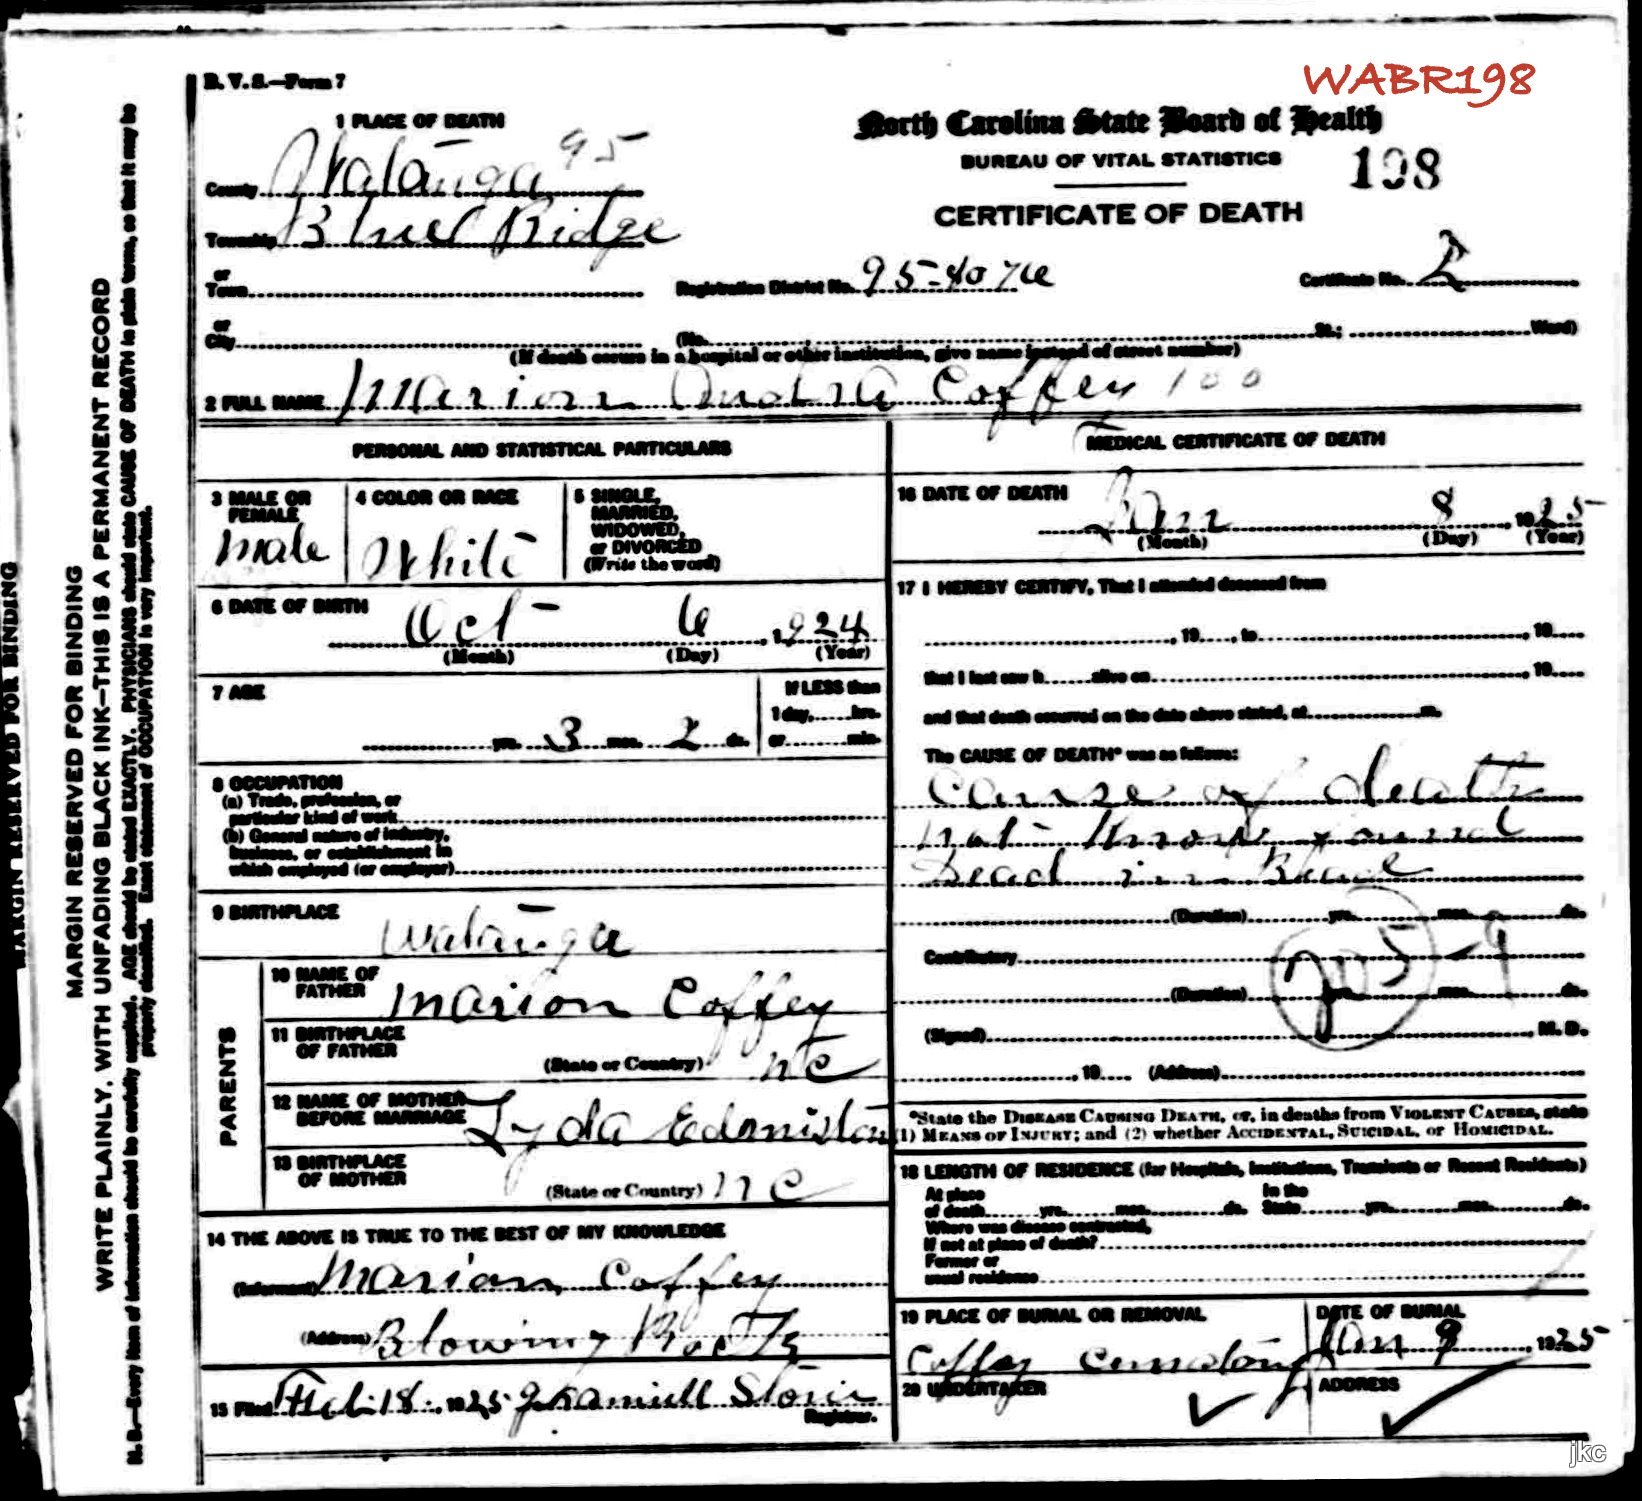 B. V. S.—Form 7
WABR198
North Carolina State Board of Health
BUREAU OF VITAL STATISTICS
198
CERTIFICATE OF DEATH
1 PLACE OF DEATH
County Watauga 95
Township Blue Ridge
or
Town
Registration District No. 95-4076
Certificate No. 2
or
City (No. St.; Ward)
(If death occurs in a hospital or other institution, give name instead of street number)
2 FULL NAME Marion Coffey 100
PERSONAL AND STATISTICAL PARTICULARS
3 MALE OR
FEMALE
Male
4 COLOR OR RACE
White
5 SINGLE,
MARRIED,
WIDOWED,
or DIVORCED
(Write the word)
6 DATE OF BIRTH
Oct 6, 1924
(Month) (Day) (Year)
7 AGE
yrs. 3 mos. 2 ds.
If LESS than
1 day, hrs.
or min.
8 OCCUPATION
(a) Trade, profession, or
particular kind of work
(b) General nature of industry,
business, or establishment in
which employed (or employer)
9 BIRTHPLACE
Watauga
PARENTS
10 NAME OF
FATHER
Marion Coffey
11 BIRTHPLACE
OF FATHER
(State or Country) NC
12 NAME OF MOTHER
BEFORE MARRIAGE
Lyda Edmisten
13 BIRTHPLACE
OF MOTHER
(State or Country) NC
14 THE ABOVE IS TRUE TO THE BEST OF MY KNOWLEDGE
(Informant) Marion Coffey
(Address) Blowing Rock
15 Filed Feb 18, 1925
Registrar.
MEDICAL CERTIFICATE OF DEATH
16 DATE OF DEATH
Jan 8, 1925
(Month) (Day) (Year)
17 I HEREBY CERTIFY, That I attended deceased from
, 19 , to , 19
that I last saw h alive on , 19
and that death occurred on the date above stated, at m.
The CAUSE OF DEATH* was as follows:
Cause of death
not know found
Dead in
(Duration) yrs. mos. ds.
Contributory
205-9
(Duration) yrs. mos. ds.
(Signed) , M. D.
, 19 (Address)
*State the DISEASE CAUSING DEATH, or, in deaths from VIOLENT CAUSES, state
(1) MEANS OF INJURY; and (2) whether ACCIDENTAL, SUICIDAL, or HOMICIDAL.
18 LENGTH OF RESIDENCE (for Hospitals, Institutions, Transients or Recent Residents)
At place
of death yrs. mos. ds.
In the
State yrs. mos. ds.
Where was disease contracted,
If not at place of death?
Former or
usual residence
19 PLACE OF BURIAL OR REMOVAL
Coffey
DATE OF BURIAL
Jan 9, 1925
20 UNDERTAKER
ADDRESS
MARGIN RESERVED FOR BINDING
MARGIN RESERVED FOR BINDING
WRITE PLAINLY, WITH UNFADING BLACK INK—THIS IS A PERMANENT RECORD
N. B.—Every item of information should be carefully supplied. AGE should be stated EXACTLY. PHYSICIANS should state CAUSE OF DEATH in plain terms, so that it may be
properly classified. Exact statement of OCCUPATION is very important.
jkc